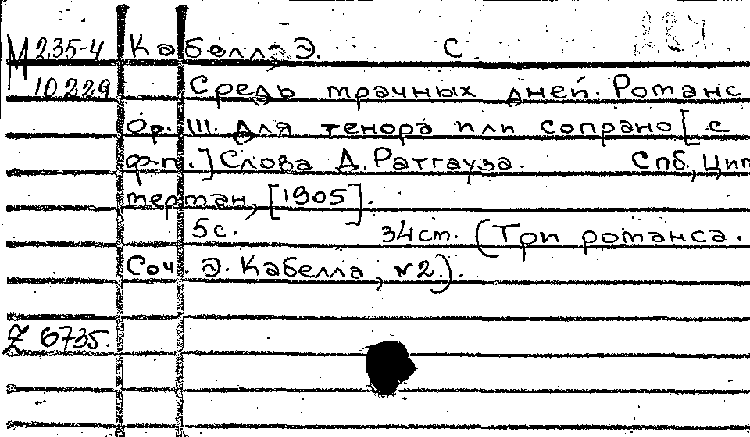 М 235-4 Кабелла, Э. С
10229 Средь мрачных дней. Романс
Ор. III. Для тенора или сопрано [с
ф-п.] Слова Д. Ратгауза. Спб, Цим
мерман, [1905].
5с. 34см. (Три романса.
Соч. Э. Кабелла, №2.).
Z 6735.